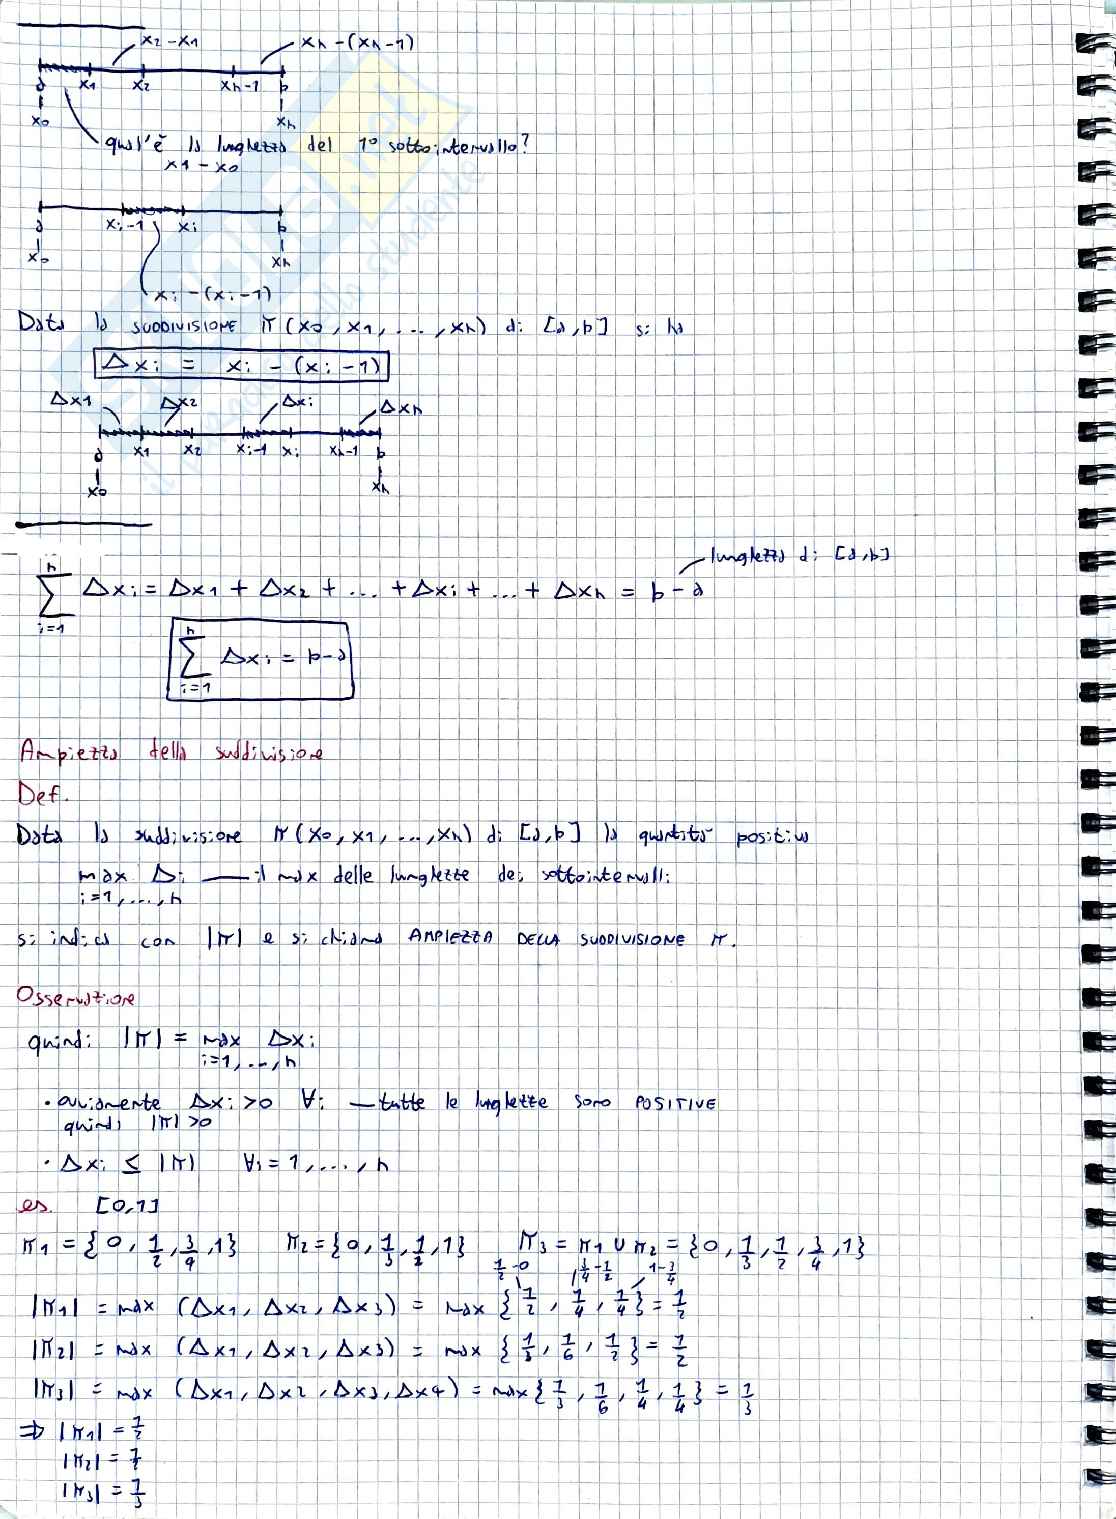 x2 - x1 xn - (xn-1)
a x1 x2 xn-1 b
x0 xn
qual'è la lunghezza del 1° sottointervallo?
x1 - x0
a xi-1 xi b
x0 xn
xi - (xi-1)
Data la SUDDIVISIONE π(x0, x1, ..., xn) di [a,b] si ha
Δxi = xi - (xi-1)
Δx1 Δx2 Δxi Δxn
a x1 x2 xi-1 xi xn-1 b
x0 xn
lunghezza di [a,b]
n
∑ Δxi = Δx1 + Δx2 + ... + Δxi + ... + Δxn = b-a
i=1
n
∑ Δxi = b-a
i=1
Ampiezza della suddivisione
Def.
Data la suddivisione π(x0, x1, ..., xn) di [a,b] la quantità positiva
max Δi — il max delle lunghezze dei sottointervalli
i=1,...,n
si indica con |π| e si chiama AMPIEZZA DELLA SUDDIVISIONE π.
Osservazione
quindi |π| = max Δxi
i=1,...,n
• ovviamente Δxi > 0 ∀i — tutte le lunghezze sono POSITIVE
quindi |π| > 0
• Δxi ≤ |π| ∀i = 1, ..., n
es. [0,1]
π1 = {0, 1/2, 3/4, 1} π2 = {0, 1/3, 1/2, 1} π3 = π1 ∪ π2 = {0, 1/3, 1/2, 3/4, 1}
1/2-0 3/4-1/2 1-3/4
|π1| = max (Δx1, Δx2, Δx3) = max {1/2, 1/4, 1/4} = 1/2
|π2| = max (Δx1, Δx2, Δx3) = max {1/3, 1/6, 1/2} = 1/2
|π3| = max (Δx1, Δx2, Δx3, Δx4) = max {1/3, 1/6, 1/4, 1/4} = 1/3
⇒ |π1| = 1/2
|π2| = 1/2
|π3| = 1/3